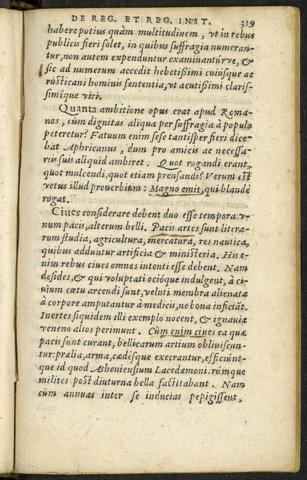 DE REG. ET REG. INST. 319
habere potius quàm multitudinem, vt in rebus
publicis fieri solet, in quibus suffragia numeran-
tur, non autem expenduntur examinanturve, &
sic ad numerum accedit hebetißimi cuiusque ac
rusticani hominis sententia, vt acutißimi claris-
simique viri.
Quanta ambitione opus erat apud Roma-
nos, cùm dignitas aliqua per suffragia à populo
peteretur? Fatuum enim sese tantisper fieri dice-
bat Aphricanus, dum pro amicis ac necessa-
riis suis aliquid ambiret. Quot rogandi erant,
quot mulcendi, quot etiam prensandi? Verum est
vetus illud prouerbium: Magno emit, qui blandè
rogat.
Ciues considerare debent duo esse tempora: v-
num pacis, alterum belli. Pacis artes sunt litera-
rum studia, agricultura, mercatura, res nautica,
quibus adduntur artificia & ministeria. His e-
nim rebus ciues omnes intenti esse debent. Nam
desides, & qui voluptati ocióque indulgent, à ci-
uium cœtu arcendi sunt, veluti membra alienata
à corpore amputantur à medicis, ne bona inficiāt.
Inertes siquidem illi exemplo nocent, & ignauiæ
veneno alios perimunt. Cùm enim ciues ea quæ
pacis sunt curant, bellicarum artium obliuiscun-
tur: prælia, arma, cædesque execrantur, efficiúnt-
que id quod Atheniensium Lacedæmoniorúmque
milites post diuturna bella factitabant. Nam
cùm annuas inter se inducias pepigissent,